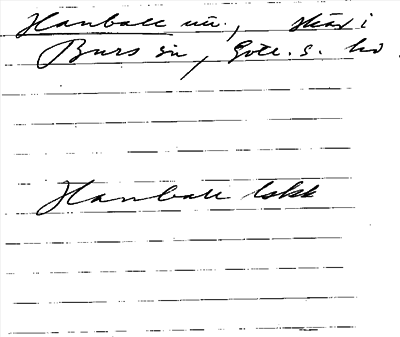 Hanball un., skär i
Burs sn, Gotl. s. hd.
Hanball lokk